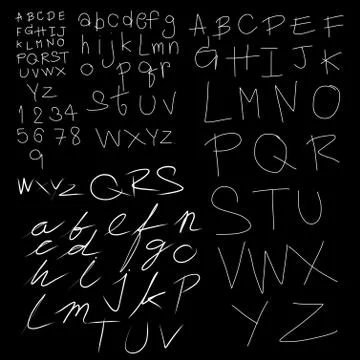 A B C D E
F G H I J
K L M N O
P Q R S T
U V W X
Y Z
1 2 3 4
5 6 7 8
9
a b c d e f g
h i j k L m n
o p q r
s t u v
w x y z
A B C D E F
G H I J K
L M N O
P Q R
S T U
V W X
Y Z
w x y z Q R S
a b e f n
c d g o
h i j k p
l m
T U V